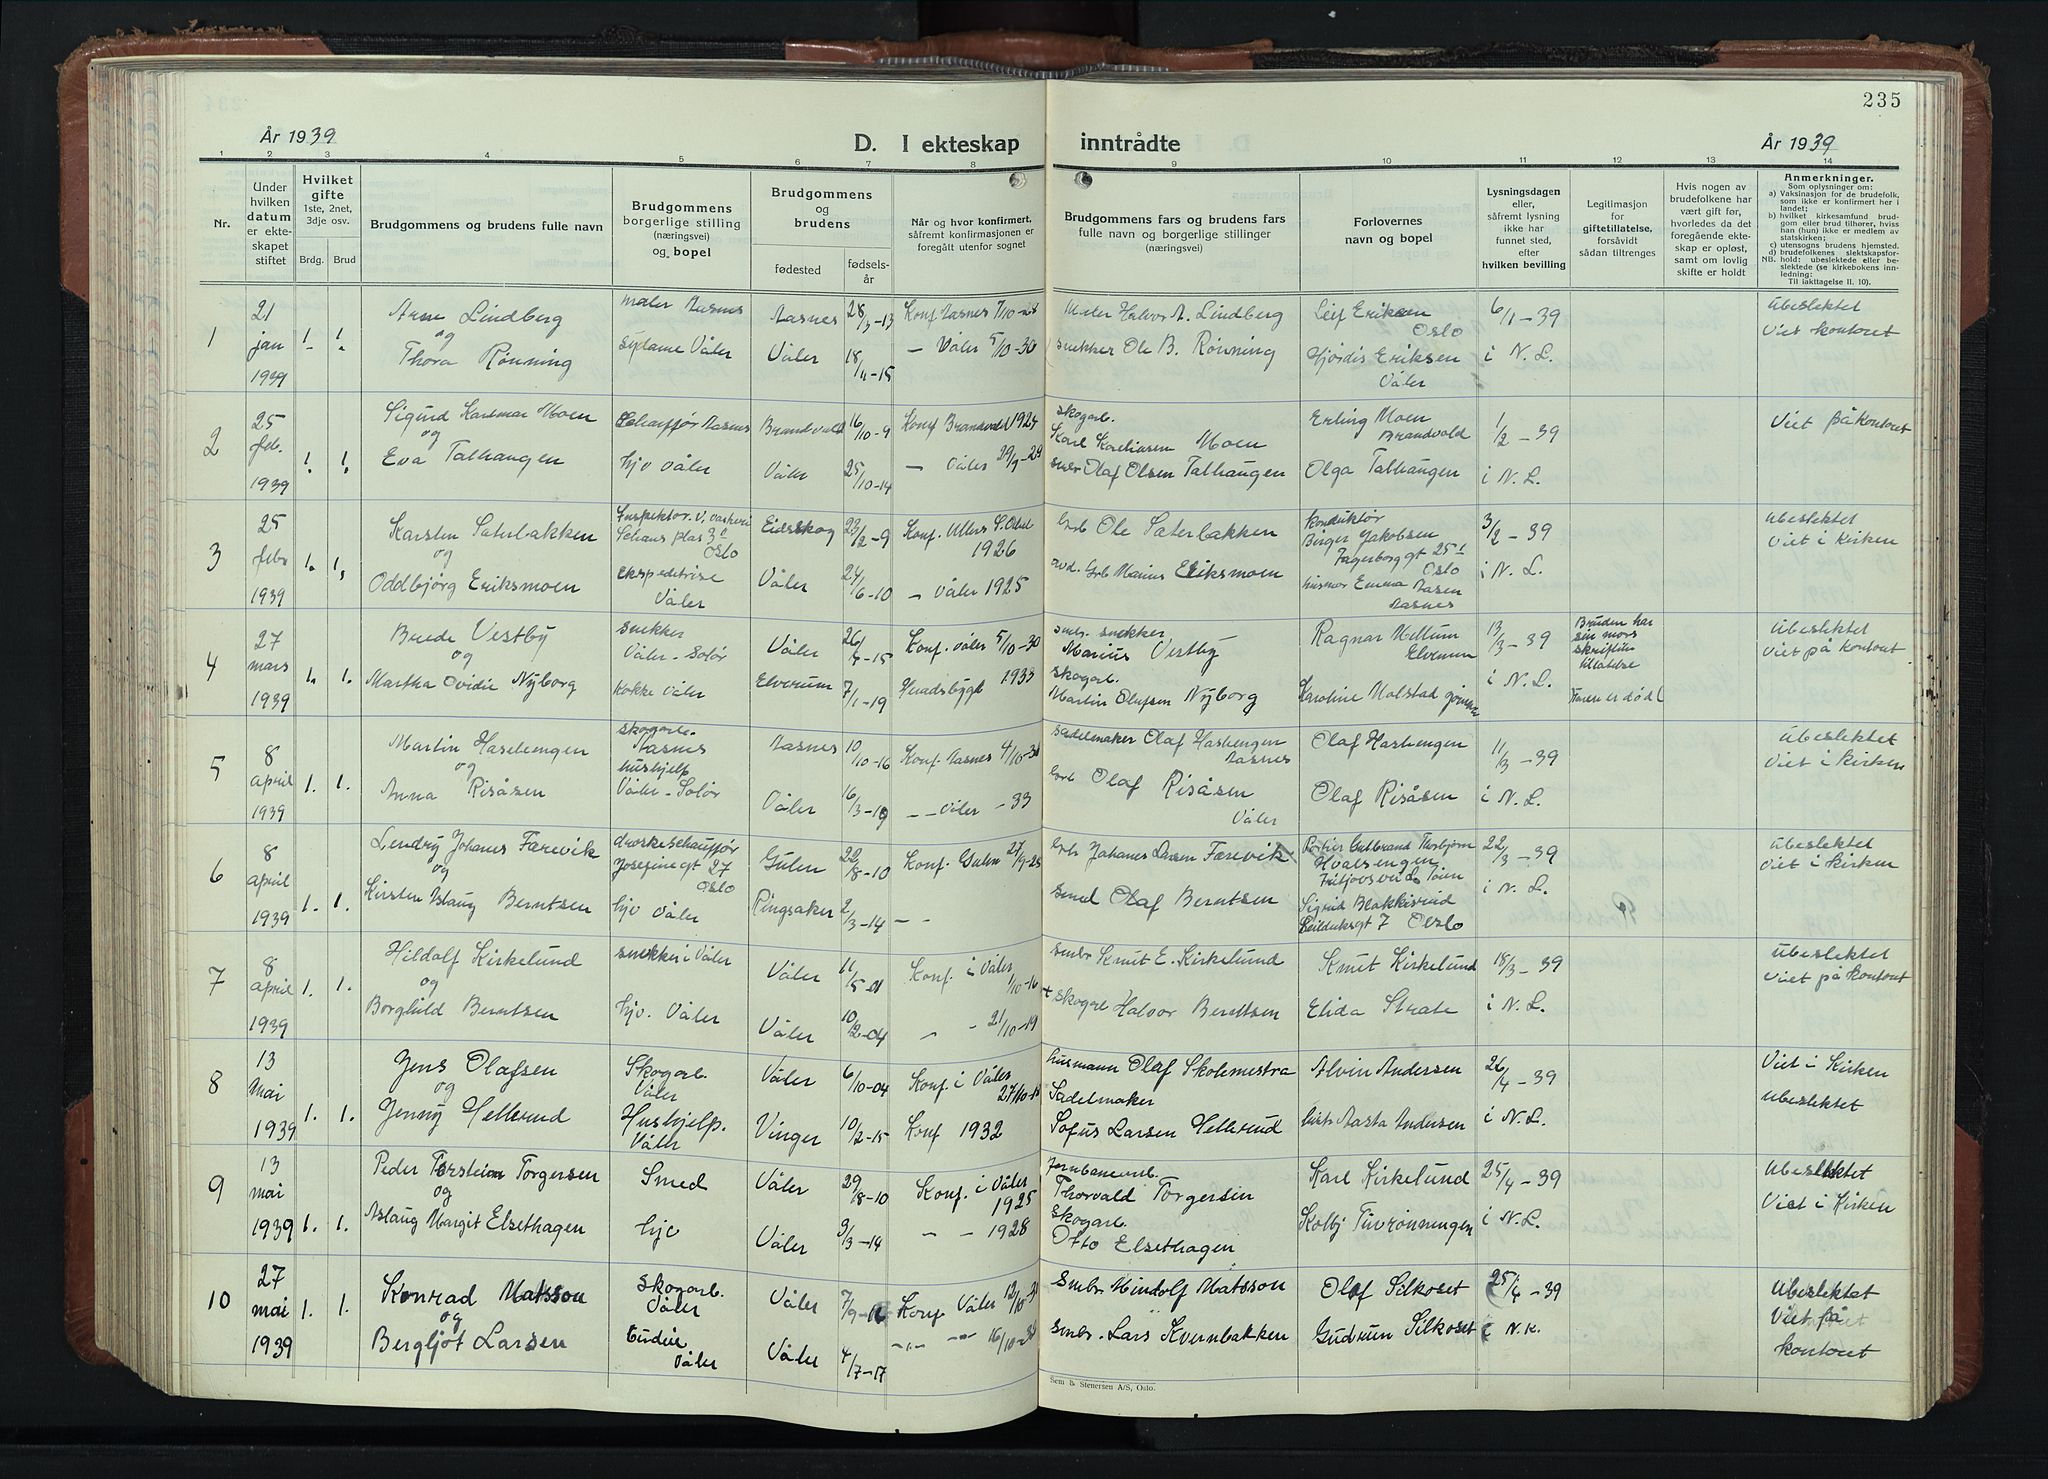 235
År 1939
D. I ekteskap
inntrådte
År 1939
1 2 3 4 5 6 7 8 9 10 11 12 13 14
Nr.
Under hvilken datum er ekteskapet stiftet
Hvilket gifte
1ste, 2net, 3dje osv.
Brdg. Brud
Brudgommens og brudens fulle navn
Brudgommens borgerlige stilling (næringsvei) og bopel
Brudgommens og brudens
fødested
fødselsår
Når og hvor konfirmert, såfremt konfirmasjonen er foregått utenfor sognet
Brudgommens fars og brudens fars fulle navn og borgerlige stillinger (næringsvei)
Forlovernes navn og bopel
Lysningsdagen eller, såfremt lysning ikke har funnet sted, efter hvilken bevilling
Legitimasjon for giftetillatelse, forsåvidt sådan tiltrenges
Hvis nogen av brudefolkene har vært gift før, hvorledes da det foregående ekteskap er opløst, samt om lovlig skifte er holdt
Anmerkninger.
Som oplysninger om:
a) Vaksinasjon for de brudefolk, som ikke er konfirmert her i landet;
b) hvilket kirkesamfund brudgom eller brud tilhører, hviss han (hun) ikke er medlem av statskirken;
c) utensogns brudens hjemsted.
d) brudefolkenes slektskapsforhold: ubeslektede eller beslektede (se kirkebokens innledning:
NB. Til iakttagelse II. 10).
1 21 jan 1939 1. 1. Arne Lindberg maler Aasnes Aasnes 28/3-13 Konf. Aasnes 7/10-28 Maler Halvor A. Lindberg Leif Eriksen Oslo 6/1-39 Ubeslektet
og
Thora Rønning sydame Våler Våler 18/11-15 — Våler 5/10-30 snekker Ole B. Rønning Hjørdis Eriksen Våler i N. L. Viet kontoret
2 25 feb. 1939 1. 1. Sigurd Karlmar Moen Schauffør Aasnes Brandvald 16/10-9 Konf Brandval 1924 skogarb. Karl Karliusen Moen Erling Moen Brandvold 1/2-39 Viet på kontoret
og
Eva Talhaugen hjv Våler Våler 25/10-14 — Våler 29/9-29 smbr Olaf Olsen Talhaugen Olga Talhaugen i N. L.
3 25 febr 1939 1. 1. Karsten Säterbakken Inspektør v. vaskeri Schous plas 3 Oslo Eidsskog 22/2-9 Konf. Ullern S. Odal 1926 Grb Ole Säterbakken Konduktør Birger Jakobsen Fagerborg gt 25 Oslo 3/2-39 Ubeslektet
og
Oddbjørg Eriksmoen Ekspeditrise Våler Våler 24/6-10 — Våler 1925 Grb Marius Eriksmoen husmor Emma Aasen Aasnes i N. L. Viet i Kirken
4 27 mars 1939 1. 1. Brede Vestby snekker Våler - Solør Våler 26/5-15 Konf. Våler 5/10-30 smbr. snekker Marius Vestby Ragnar Mellum Elverum 13/3-39 Bruden har sin mors skriftlige tillatelse Ubeslektet
og
Martha Ovidie Nyborg Kokke Våler Elverum 7/1-19 Heradsbygt 1933 Skogarb. Martin Olufsen Nyborg Karoline Molstad i N. L. Faren er død Viet på kontoret
5 8 april 1939 1. 1. Martin Hasliengen skogarb. Aasnes Aasnes 10/10-16 Konf. Aasnes 4/10-31 Sadelmaker Olaf Hasliengen Aasnes Olaf Hasliengen 11/3-39 Ubeslektet
og
Anna Risåsen hushjelp Våler - Solør Våler 16/3-19 — Våler -33 Grb Olaf Risåsen Våler Olaf Risåsen i N. L. Viet i Kirken
6 8 april 1939 1. 1. Lendry Johanes Færevik droskeschauffør Josefinegt 27 Oslo Gulen 22/8-10 Konf. Gulen 27/9-25 Grb Johanes Larsen Færevik Hvalsengen 22/3-39 Ubeslektet
og
Kirsten Aslaug Berntsen hjv Våler Ringsaker 2/3-14 — — Smed Olaf Berntsen Sigrid Blakkisrud 7 Oslo i N. L. Viet i Kirken
7 8 april 1939 1. 1. Hildolf Kirkelund snekker i Våler Våler 11/5-01 Konf. i Våler 1/10-16 smbr Knut E. Kirkelund Knut Kirkelund 18/3-39 Ubeslektet
og
Borghild Berntsen hjv. Våler Våler 10/12-04 — - 21/10-19 + skogarb Halvor Berntsen Elida Strate i N. L. Viet på kontoret
8 13 Mai 1939 1. 1. Jens Olafsen Skogarb. Våler Våler 6/10-04 Konf. i Våler 27/10-18 husmann Olaf Skolemestra Alvin Andersen 26/4-39 Viet i Kirken
og
Jenny Hellerud Hushjelp. Våler Vinger 10/2-15 Konf 1932 Sadelmaker Sofus Larsen Hellerud Aasta Andersen i N. L. Ubeslektet
9 13 mai 1939 1. 1. Peder Torstein Torgersen Smed Våler 29/8-10 Konf. i Våler 1925 Jernbanearb. Thorvald Torgersen Karl Kirkelund 25/4-39 Ubeslektet
og
Aslaug Margit Elsethagen hjv Våler 9/3-14 — — 1928 Skogarb. Otto Elsethagen Kolbj Tuvrønningen i N. L. Viet i Kirken
10 27 mai 1939 1. 1. Konrad Matsson Skogarb. Våler Våler 7/9-16 Konf Våler 12/10-30 Smbr Hindolf Matsson Olaf Silkoset 25/4-39 Ubeslektet
og
Bergljot Larsen Budeie Våler Våler 4/7-17 —"— —"— 16/10-32 Smbr. Lars Kvernbakken Gudrun Silkoset i N. K. Viet på kontoret
Sem & Stenersen A/S, Oslo.